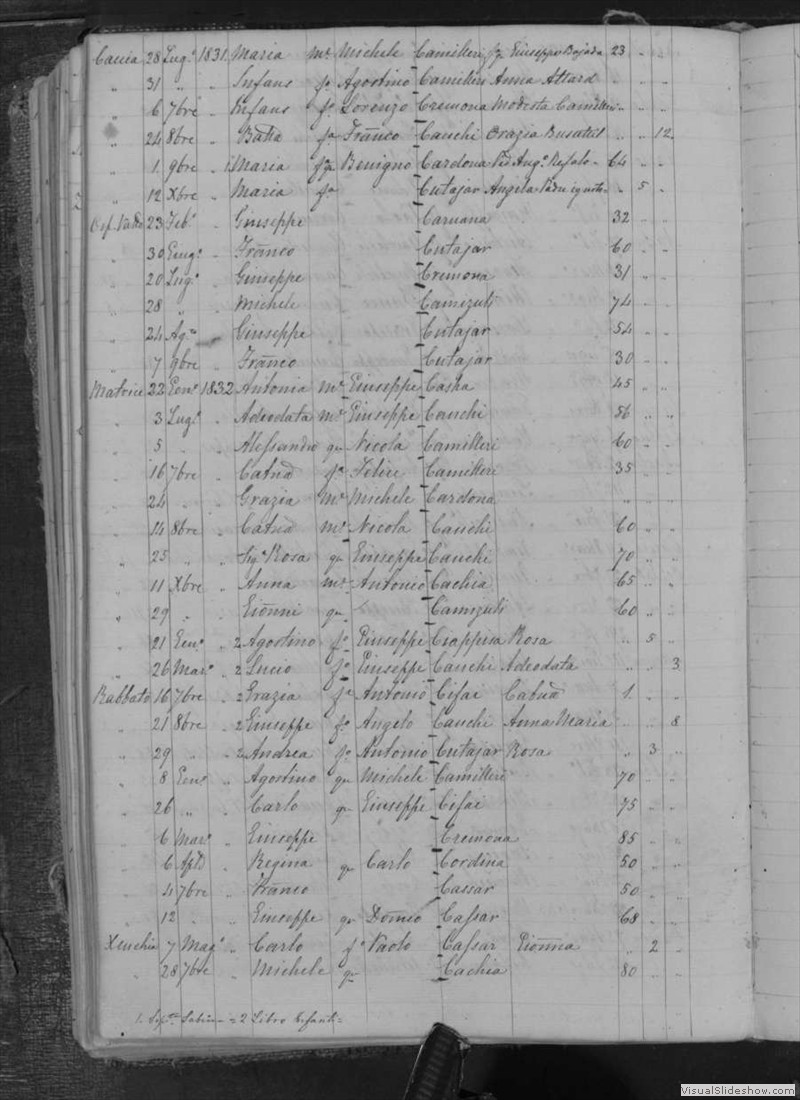 Caccia 28 Lug.o 1831 Maria m.e Michele Camilleri fa Giuseppe Bajada 23 " "
" 31 " " Infans fo Agostino Camilleri Anna Attard " "
" 6 7bre " Infans fo Lorenzo Cremona Modesta Camilleri " "
" 24 8bre " Batta fo Franco Cauchi Grazia Busuttil " " 12
" 1 9bre " 1 Maria fa Benigno Cardona Ang.a Refalo 64 " "
" 12 Xbre " Maria fa Cutajar Angela Padre ignoto " 5 "
23 Feb.o " Giuseppe Caruana 32 " "
" 30 Giug.o " Franco Cutajar 60 " "
" 20 Lug.o " Giuseppe Cremona 31 " "
" 28 " " Michele Camizuli 74 " "
" 24 Ag.to " Giuseppe Cutajar 54 " "
" 7 9bre " Franco Cutajar 30 " "
Matrice 22 Gen.o 1832 Antonia m.e Giuseppe Casha 45 " "
" 3 Lug.o " Adeodata m.e Giuseppe Cauchi 56 " "
" 5 " " Alessandro qm Nicola Camilleri 60 " "
" 16 7bre " Catna fa Felice Camilleri 35 " "
" 24 " " Grazia m.e Michele Cardona " " "
" 14 8bre " Catna m.e Nicola Cauchi 60 " "
" 25 " " Sig.a Rosa qm Giuseppe Cauchi 70 " "
" 11 Xbre " Anna m.e Antonio Cachia 65 " "
" 29 " " Gionni qm Camizuli 60 " "
" 21 Gen.o " 2 Agostino fo Giuseppe Rosa " 5 "
" 26 Mar.o " 2 Lucio fo Giuseppe Cauchi Adeodata " " 3
Rabbato 16 7bre " 2 Grazia fa Antonio Cifai Catna 1 " "
" 21 8bre " 2 Giuseppe fo Angelo Cauchi Anna Maria " " 8
" 29 " " 2 Andrea fo Antonio Cutajar Rosa " 3 "
" 8 Gen.o " Agostino qm Michele Camilleri 70 " "
" 26 " " Carlo qm Giuseppe Cifai 75 " "
" 6 Mar.o " Giuseppe Cremona 85 " "
" 6 Aple " Regina qm Carlo Cordina 50 " "
" 4 7bre " Franco Cassar 50 " "
" 12 " " Giuseppe qm Domco Cassar 68 " "
Xeuchia 7 Mag.o " Carlo fo Paolo Cassar Gionna " 2 "
" 28 7bre " Michele qm Cachia 80 " "
1. Sabina = 2 Libro Infanti =
VisualSlideshow.com